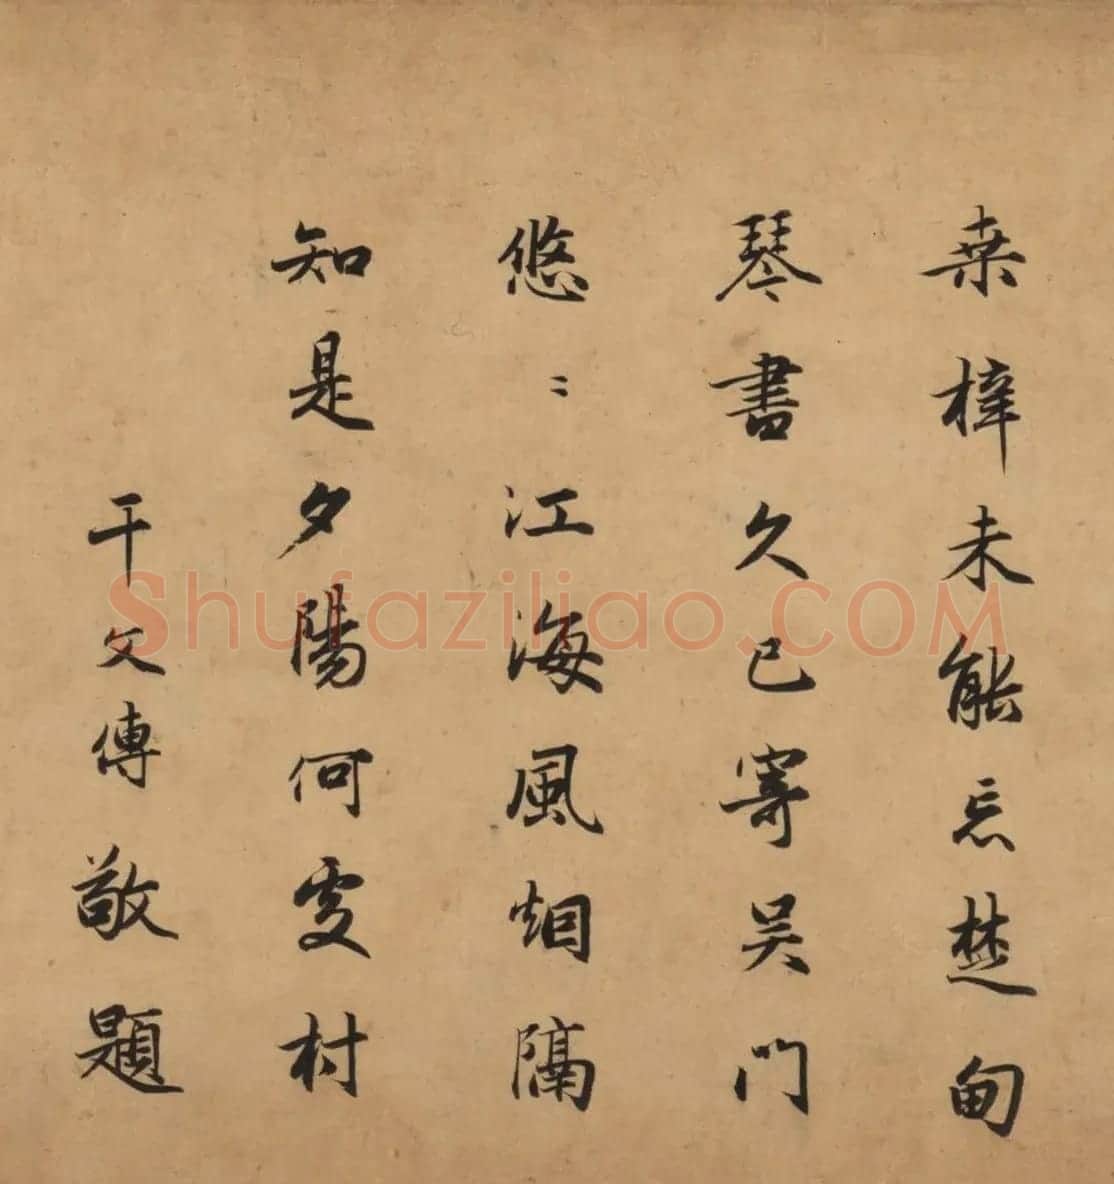 桒梓未能忘楚甸
琴書久已寄吴門
悠〻江海風烟隔
知是夕陽何处村
干文傳敬題
Shufaziliao.COM